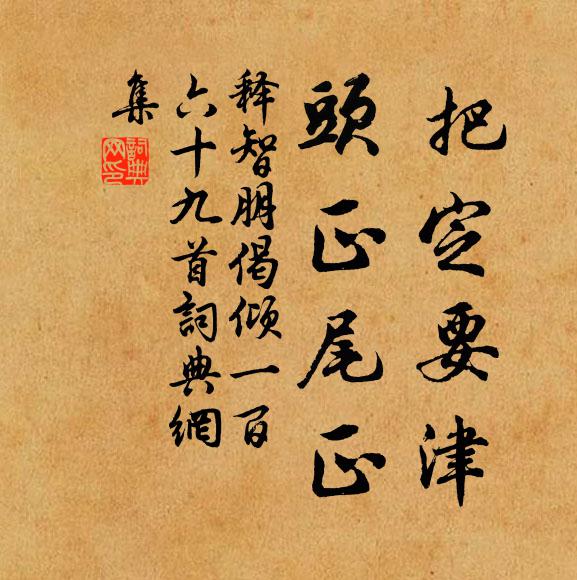 把定要津
頭正尾正
释智朋偈傾一百
六十九首詞典網
集
詞典
网印